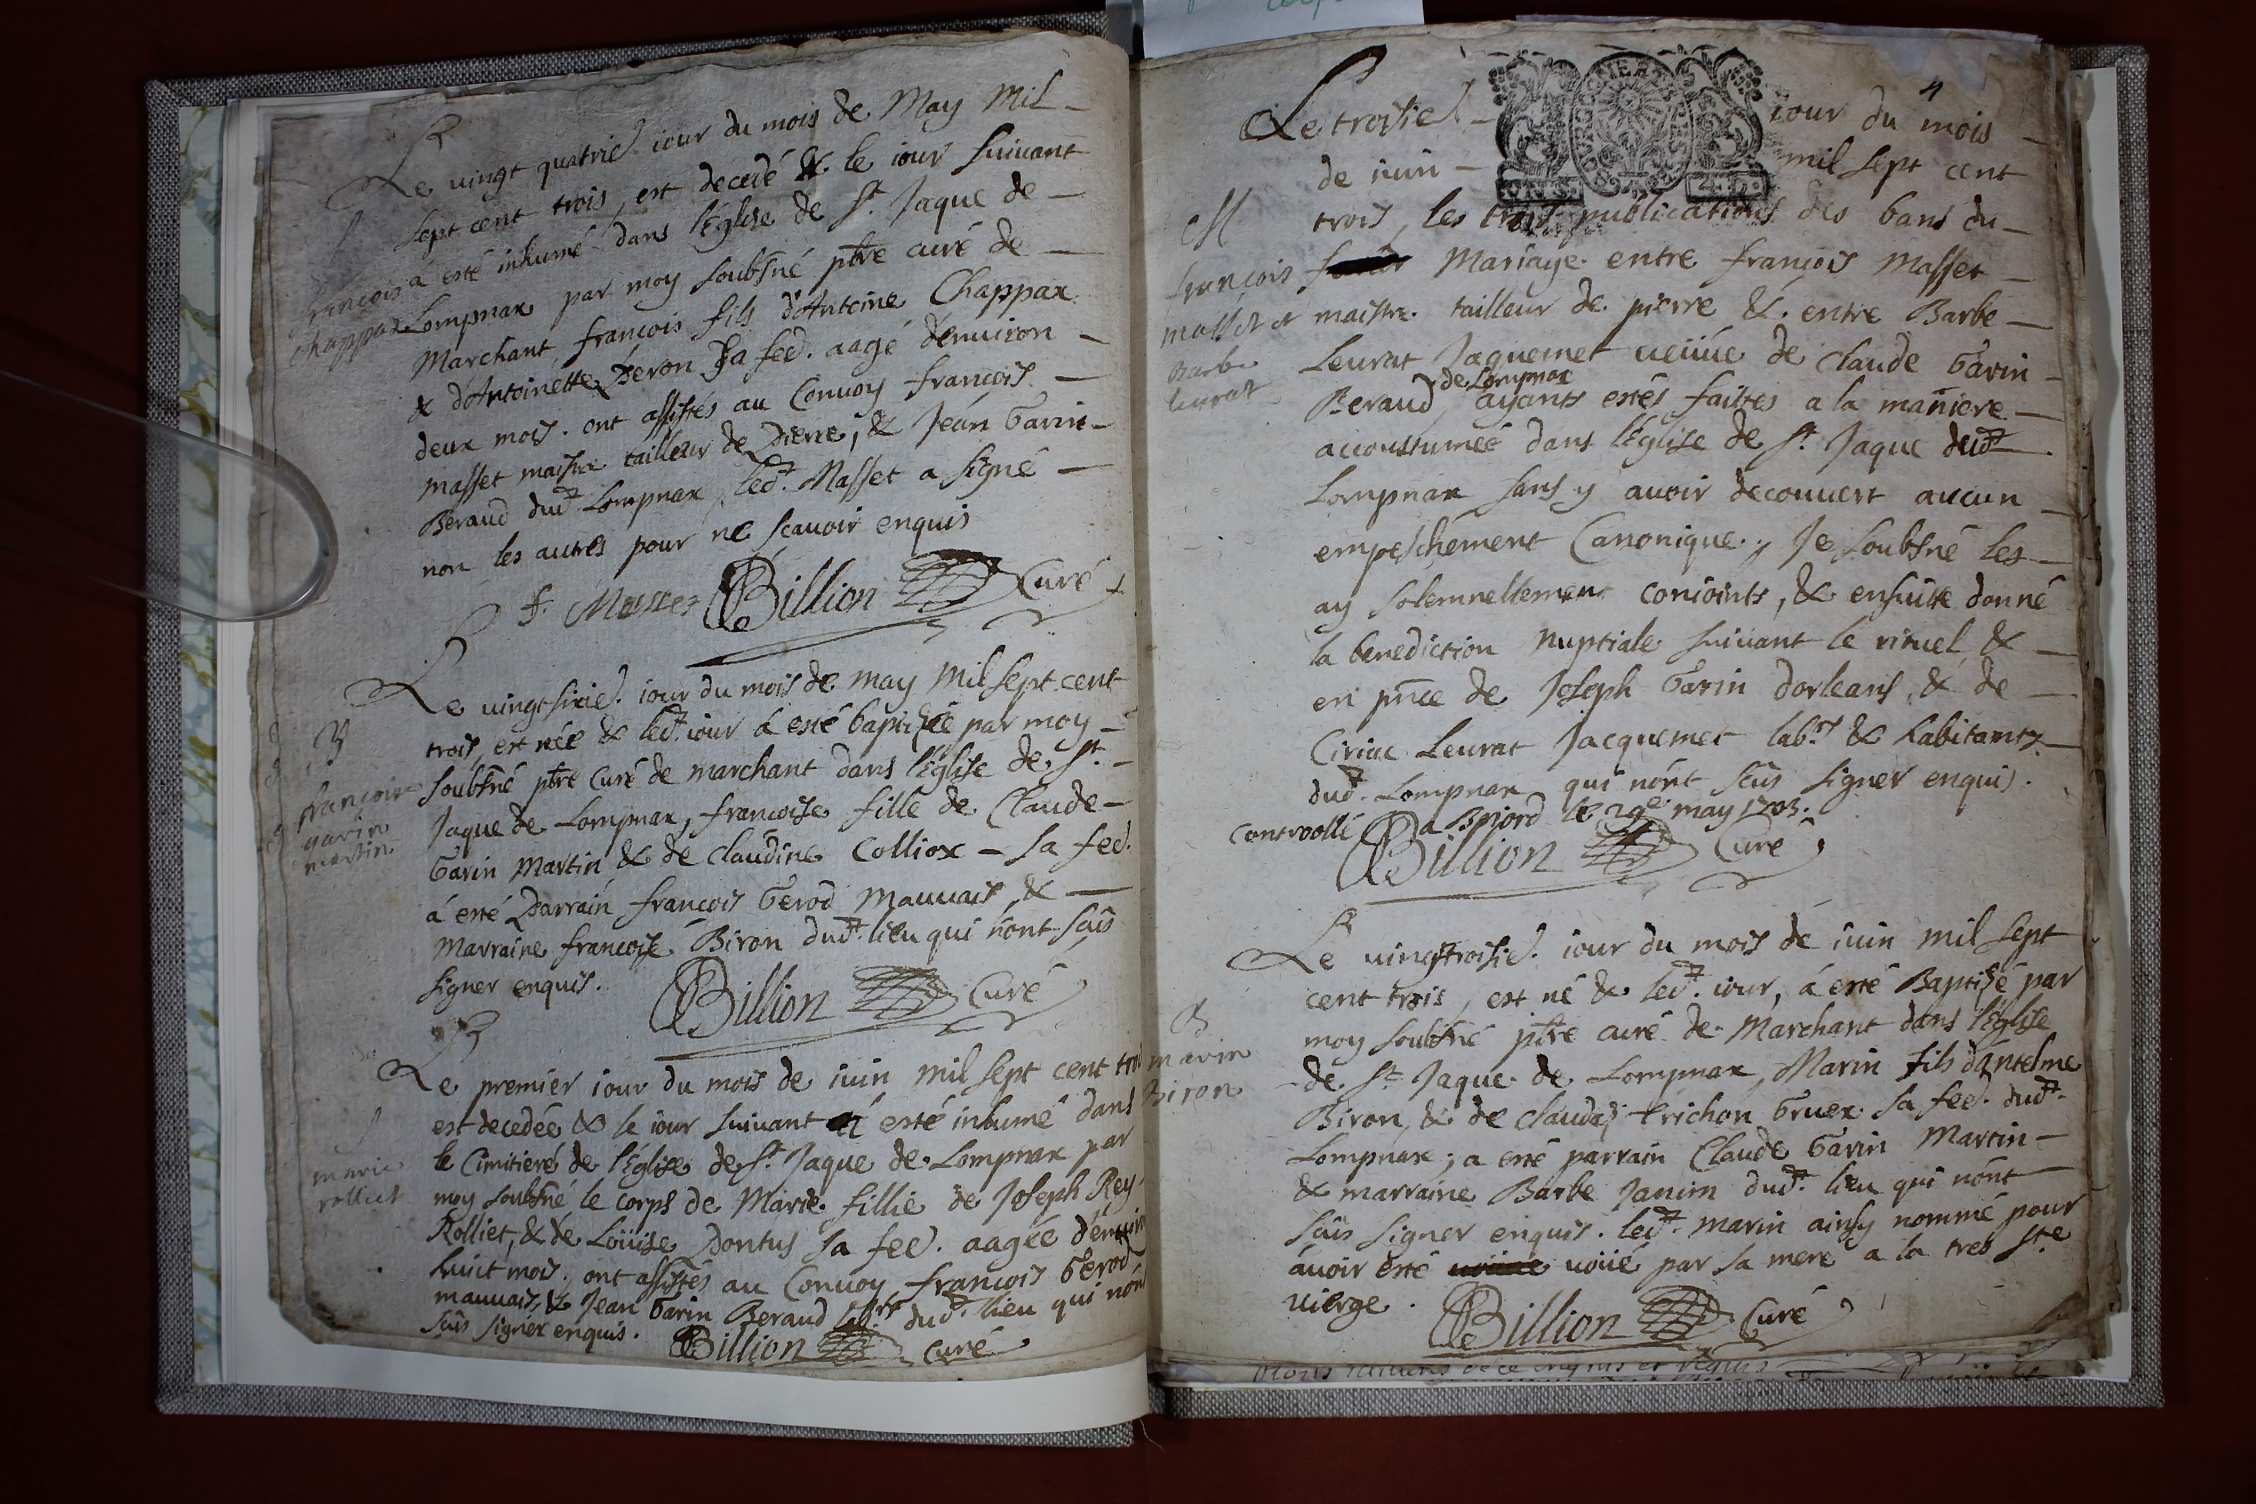 Le vingt quatrie. iour du mois de May Mil
sept cent trois, est decedé & le iour suiuant
á esté inhumé dans l'Eglise de St. Jaque de
Lompnax par moy soubsné ptre curé de
Marchant, francois fils d'Antoine Chappax
& d'Antoinette Peron sa fee. aagé d'enuiron
deux mois. ont assistés au Conuoy françois
masset maistre tailleur de Pierre, & Jean Garin
Beraud dud. Lompnax, led. Masset a signé
non les autres pour ne scauoir enquis
francois
chappax
f. Masset Billion Curé
Le vingtsixie. iour du mois de may Mil sept cent
trois, est née & led. iour á esté baptizée par moy
soubsné ptre Curé de marchant dans l'Eglise de St.
Jaque de Lompnax, francoise fille de Claude
Garin Martin & de Claudine Colliox sa fee.
á esté Parrain francois Gerod Mauuais &
Marraine francoise Biron dud. lieu qui n'ont sceus
signer enquis.
B
francoise
garin
martin
Billion Curé
Le premier iour du mois de iuin mil sept cent
est decedée & le iour suiuant á esté inhumé dans
le Cimitiere de l'Eglise de St. Jaque de Lompnax par
moy soubsné le corps de Marie fillie de Joseph Rey
Rolliet, & de Loüise Pontus sa fee. aagée
huict mois. ont assistés au Conuoy francois Gerod
mauuais, & Jean Garin Beraud dud. lieu qui
sceus signer enquis.
marie
rolliet
Billion Curé
4
Le troisie iour du mois
de iuin mil sept cent
trois, les trois publications des bans du
Mariage entre françois Masset
maistre tailleur de pierre & entre Barbe
Leurat Jaquemet veuue de Claude Garin
Beraud de Lompnax ayants estés faittes a la maniere
accoustumée dans l'Eglise de St. Jaque dud.
Lompnax sans y auoir decouuert aucun
empeschement Canonique, Je soubsné les
ay solemnellement conioints, & ensuitte donné
la benediction nuptiale suiuant le rituel &
en pnce de Joseph Garin dorleans & de
Ciriac Leurat Jacquemet labrs & habitants
dud. Lompnax qui n'ont sceus signer enquis.
controollé a Briord le 29e may 1703.
M
françois
masset et
Barbe
leurat
Billion Curé
Le vingttroisie. iour du mois de iuin mil sept
cent trois, est né & led. iour, á esté Baptisé par
moy soubsné ptre curé de Marchant dans l'Eglise
de St. Jaque de Lompnax, Marin fils d'Antelme
Biron, & de Clauda Trichon Gruex sa fee. dud.
Lompnax; a esté parrain Claude Garin Martin
& marraine Barbe Janim dud. lieu qui n'ont
sceus signer enquis. led. marin ainsy nommé pour
áuoir esté voüé par sa mere a la tres Ste
vierge.
B
marin
Biron
Billion Curé